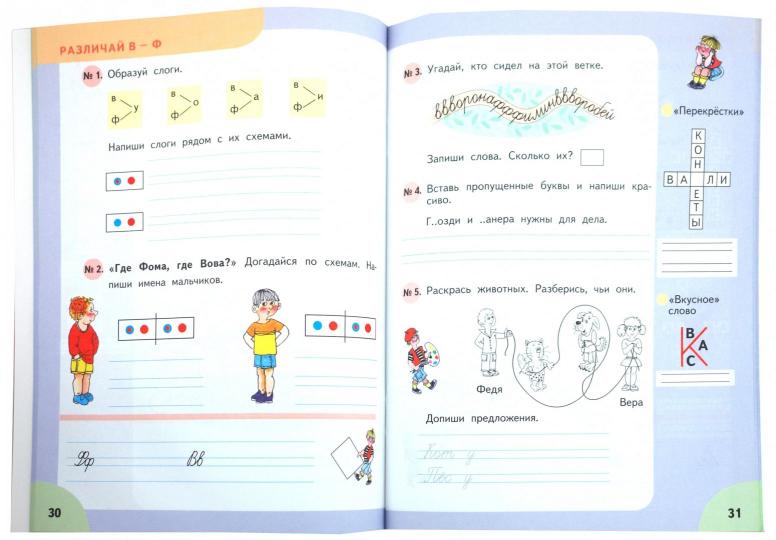 РАЗЛИЧАЙ В – Ф
№ 1. Образуй слоги.
в ф у
в ф о
в ф а
в ф и
Напиши слоги рядом с их схемами.
№ 2. «Где Фома, где Вова?» Догадайся по схемам. На-
пиши имена мальчиков.
Фф Вв
30
№ 3. Угадай, кто сидел на этой ветке.
вввворонафффилинвввворобей
Запиши слова. Сколько их?
№ 4. Вставь пропущенные буквы и напиши кра-
сиво.
Г..озди и ..анера нужны для дела.
№ 5. Раскрась животных. Разберись, чьи они.
Федя
Вера
Допиши предложения.
Кот у
Пёс у
«Перекрёстки»
К
О
Н
ВА ЛИ
Е
Т
Ы
«Вкусное»
слово
В
К А
С
31